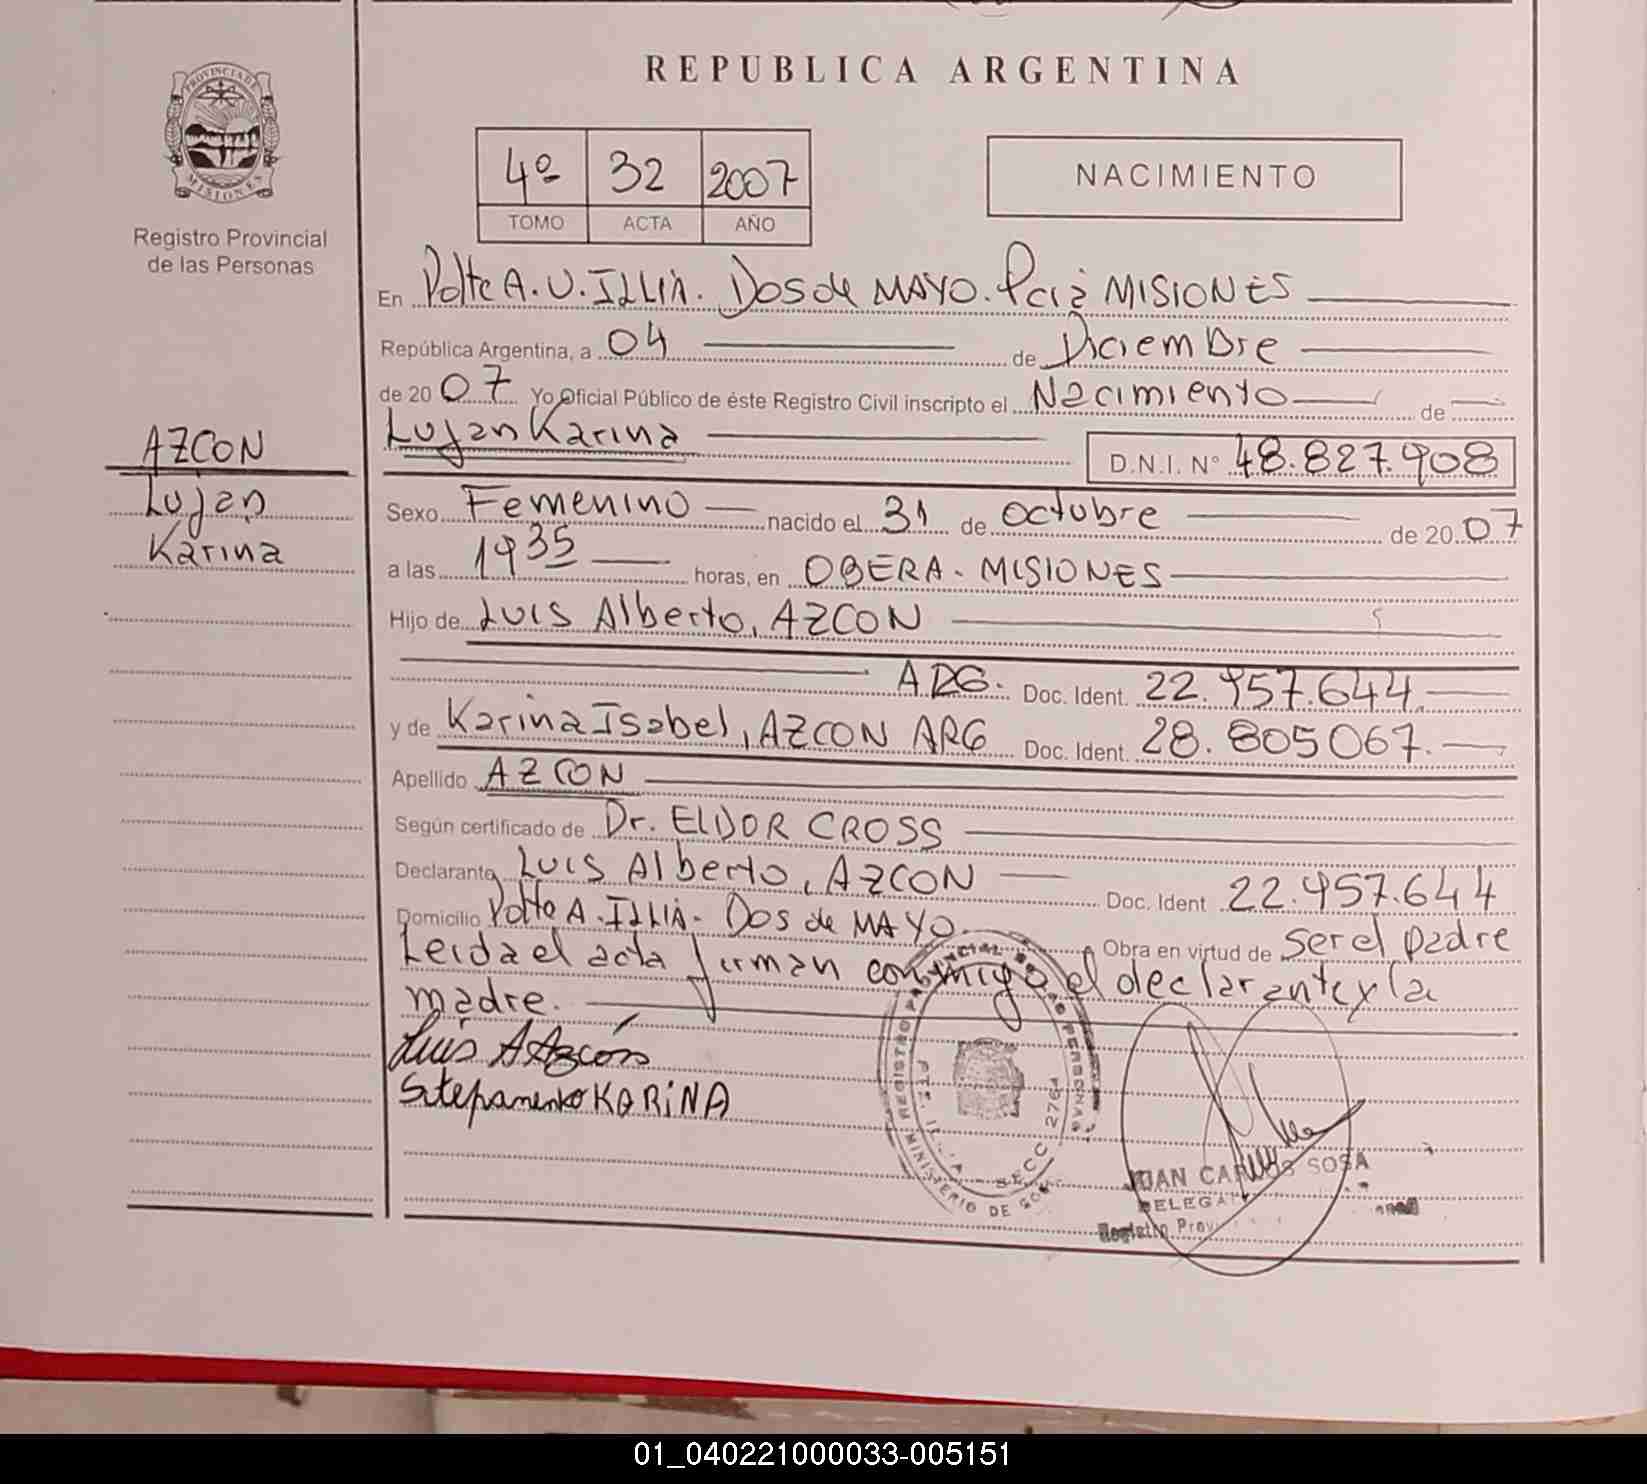 REPUBLICA ARGENTINA
PROVINCIA DE MISIONES
Registro Provincial
de las Personas
4º 32 2007
TOMO ACTA AÑO
NACIMIENTO
En Pdte A.U. ILLIA. Dos de MAYO. Pcia MISIONES
República Argentina, a 04 de Diciembre
de 2007 Yo Oficial Público de éste Registro Civil inscripto el Nacimiento de
Lujan Karina D.N.I. Nº 48.827.908
AZCON
Lujan
Karina
Sexo Femenino nacido el 31 de octubre de 2007
a las 1935 horas, en OBERA - MISIONES
Hijo de Luis Alberto, AZCON
ARG. Doc. Ident. 22.957.644
y de Karina Isabel, AZCON ARG Doc. Ident. 28.805067.
Apellido AZCON
Según certificado de Dr. ELDOR CROSS
Declarante Luis Alberto, AZCON Doc. Ident 22.957.644
Domicilio Pdte A. ILLIA - Dos de MAYO. Obra en virtud de ser el padre
Leida el acta firman conmigo el declarante y la
madre.
Luis A Azcón
Stepanenko KARINA
REGISTRO PROVINCIAL DE LAS PERSONAS
MINISTERIO DE GOB.
SECC. 2761
JUAN CARLOS SOSA
DELEGA
Registro Prov
01_040221000033-005151